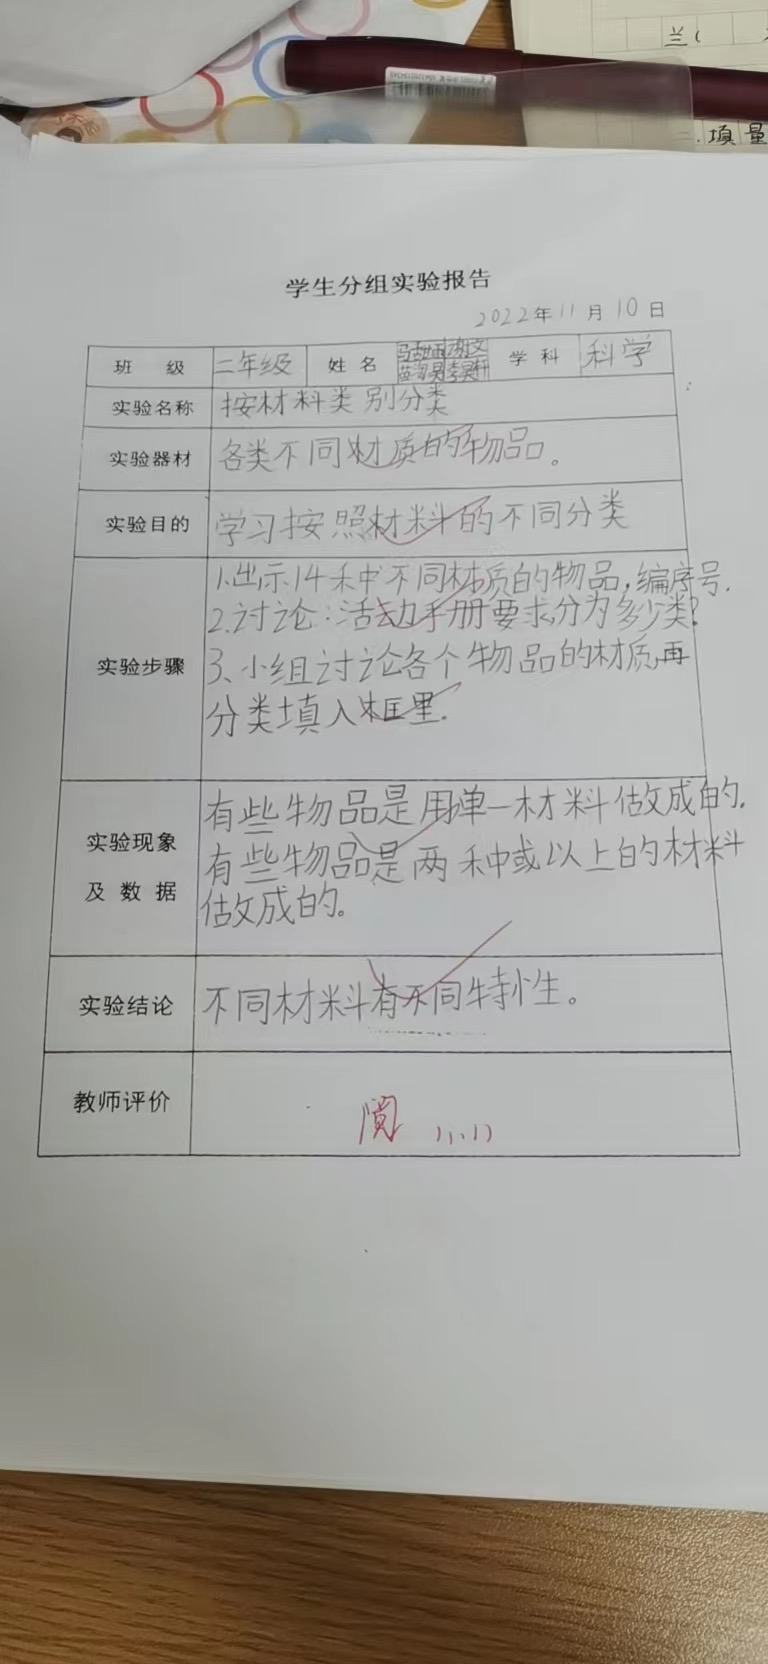 兰(
填量
学生分组实验报告
2022年11月10日
班 级 二年级 姓名 学科 科学
实验名称 按材料类别分类
实验器材 各类不同材质的物品。
实验目的 学习按照材料的不同分类
实验步骤
1.出示14种不同材质的物品,编序号.
2.讨论:活动手册要求分为多少类?
3、小组讨论各个物品的材质,再
分类填入框里.
实验现象
及数据
有些物品是用单一材料做成的.
有些物品是两种或以上的材料
做成的。
实验结论 不同材料有不同特性。
教师评价 阅 11.11